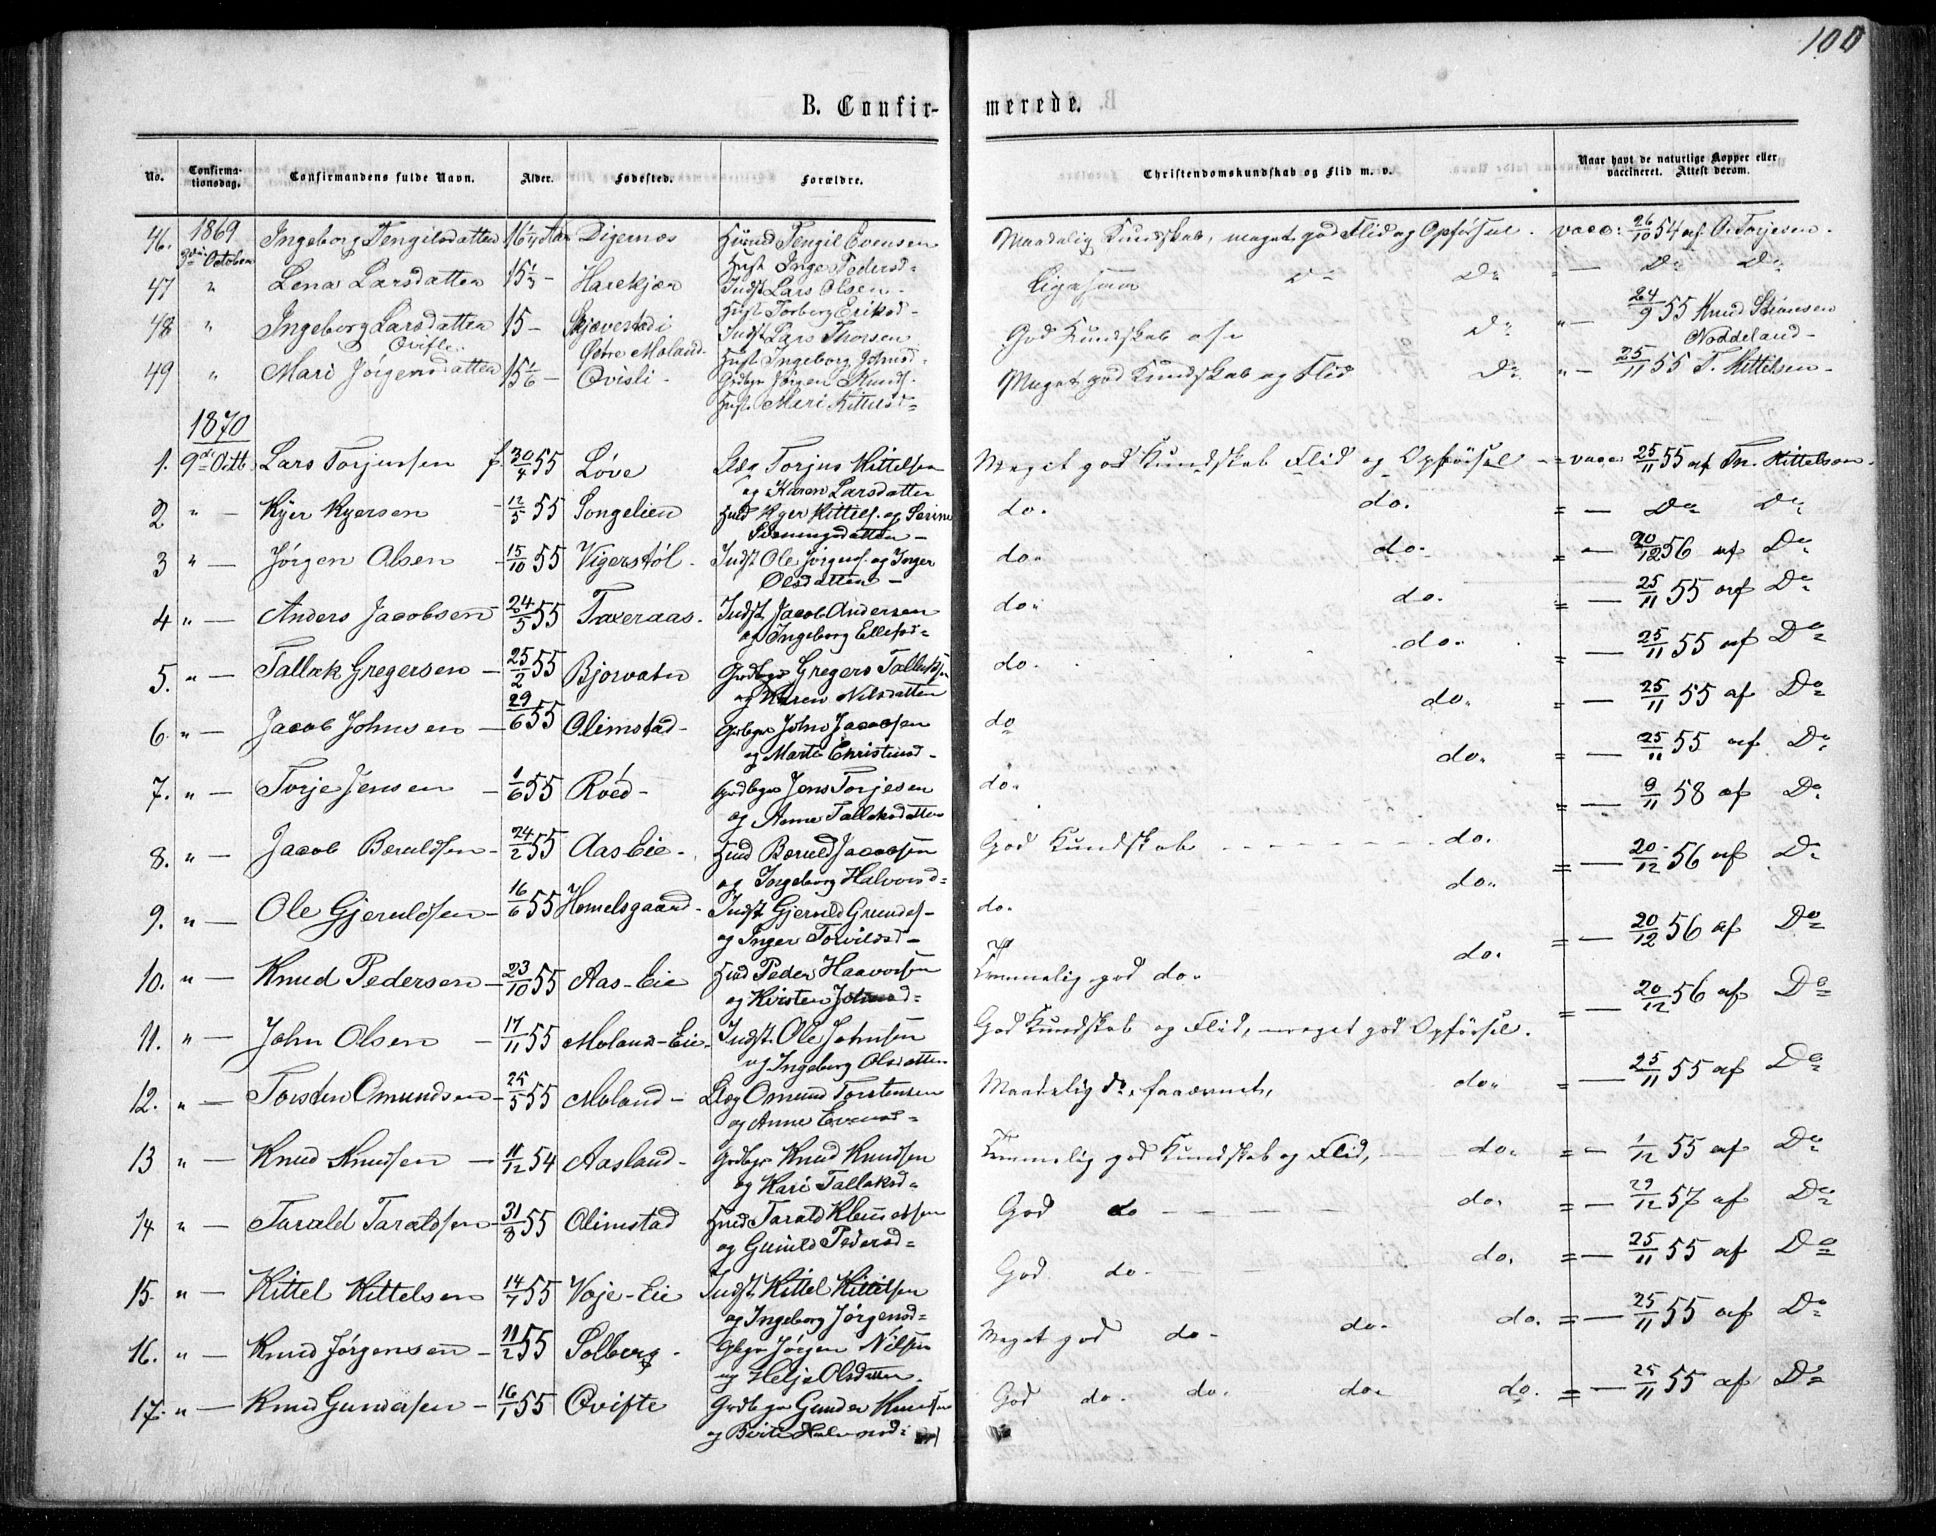 100
B. Confir-
merede.
No. Confirma-tionsdag. Confirmandens fulde Navn. Alder. Fødested. Forældre. Christendomskundskab og Flid m. v. Naar havt de naturlige Kopper eller vaccineret. Attest derom.
1869
46. 3die October Ingeborg Tengilsdatter 16 1/4 Aar Digernes Huusmd Tengil Evensen Maadelig Kundskab, meget god Flid og Opførsel. vacc: 26/10 54 af O. Terjesen.
Hust. Inge Pedersd-
47 " Lena Larsdatter 15 1/2 - Harekjær Indst Lars Olsen - Ligesaa Do Do " - Do Do
Hust Torberg Eriksd-
48 " Ingeborg Larsdatter 15 - Skjævestad i Indst Lars Thorsen God Kundskab Do " - 24/9 55 Knud
Øvre Moland. Hust Ingeborg Johnsd- Noddeland -
49 " Mari Jørgensdatter 15 5/6 - Ovisli - Grdbgr Jørgen Knuds. Meget god Kundskab og Flid Do " - 25/11 55 T. Kittelsen -
Hust. Mari Kittelsd-
1870
1. 9de Octb Lars Torjussen f. 30/4 55 Løve Torjus Kittelsen Meget god Kundskab Flid og Opførsel - = vacc 25/11 55 af Kittelsen.
og Karen Larsdatter
2 " - Kyer Kyersen - 12/5 55 Songelien Huusd Kyer Kittels. og Serine do. do. = - Do Do
3 " - Jørgen Olsen - 15/10 55 Vigerstøl - Indst Ole Jørgens. og Inger do. do. = - 20/12 56 af Do
Olsdatter -
4 " - Anders Jacobsen - 24/5 55 Taxeraas. Indst. Jacob Andersen do. do. = - 25/11 55 af Do
og Ingeborg Ellefsd-
5. " - Tallak Gregersen - 25/2 55 Bjorvatn Grdbgr Gregers Tallaksen do. do. = - 25/11 55 af Do
og Karen Nilsdatter
6 " - Jacob Johnsen - 29/6 55 Olimstad - Grdbgr John Jacobsen do do. = - 25/11 55 af Do
og Marte Christensd -
7. " - Terje Jensen - 1/6 55 Røed - Grdbgr Jens Terjesen do. do. = - 25/11 55 af Do
og Anne Tallaksdatter
8. " - Jacob Beruldsen - 24/2 55 Aas Eie - Huusd Beruld Jacobsen God Kundskab - - - do. = - 9/11 58 af Do
og Ingeborg Halvorsd-
9. " - Ole Gjeruldsen - 16/6 55 Homelsgaard - Indst Gjeruld Grundes - do. do. = - 20/12 56 af Do
og Inger Torvildsd -
10. " - Knud Pedersen - 23/10 55 Aas-Eie Huusd Peder Haavorsen Temmelig god do. do. = - 20/12 56 af Do
og Kirsten Johnsd-
11. " - John Olsen - 17/11 55 Moland-Eie - Indst. Ole Johnsen God Kundskab og Flid, meget god Opførsel. = - 20/12 56 af Do
og Ingeborg Olsdatter
12. " - Torsten Omundsen - 25/5 55 Moland - Omund Torstensen Maadelig do, do. = - 25/11 55 af Do
og Anne Evensd -
13 " - Knud Knudsen - 11/12 54 Aasland - Grdbgr Knud Knudsen Temmelig god Kundskab og Flid, - do. = - 1/12 55 af Do
og Kari Tallaksd-
14 " - Tarald Taraldsen - 31/8 55 Olimstad Huusd Tarald Klemetsen God do - - - do. = - 29/12 57 af Do
og Gunild Pedersd-
15. " - Kittel Kittelsen 14/7 55 Voje-Eie Indst. Kittel Kittilsen God do. - - - do. = - 25/11 55 af Do
og Ingeborg Jørgensd-
16. " - Knud Jørgensen - 11/2 55 Solberg - Gbgr Jørgen Nilsen Meget god do. do. do. = - 25/11 55 af Do
og Helje Olsdatter.
17. " - Knud Gundersen - 16/1 55 Ovifte Grdbgr Gunder Knudsen God do. do. do. do. = - 25/11 55 af Do
og Birte Halvorsd-